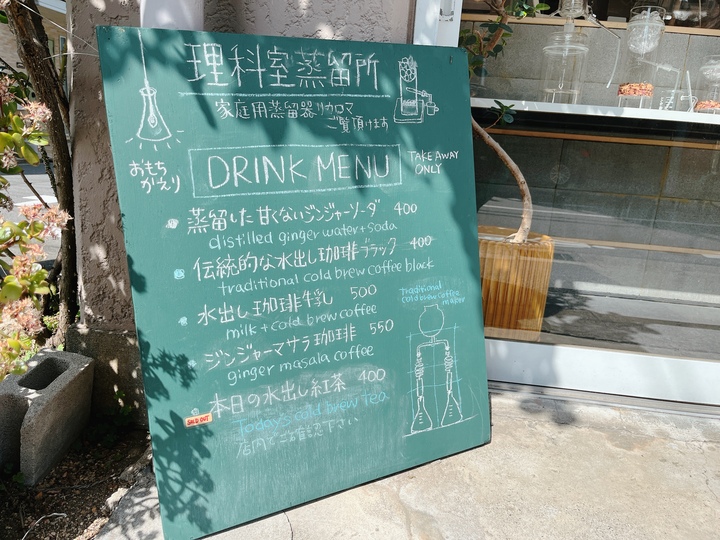 理科室蒸留所
家庭用蒸留器リカロマ
ご覧頂けます
おもち
かえり
DRINK MENU
TAKE AWAY
ONLY
蒸留した甘くないジンジャーソーダ 400
distilled ginger water + soda
伝統的な水出し珈琲ブラック 400
traditional cold brew coffee black
水出し珈琲牛乳 500
milk + cold brew coffee
ジンジャーマサラ珈琲 550
ginger masala coffee
本日の水出し紅茶 400
SOLD OUT
Today's cold brew tea
店内でご確認下さい
traditional
cold brew coffee
maker